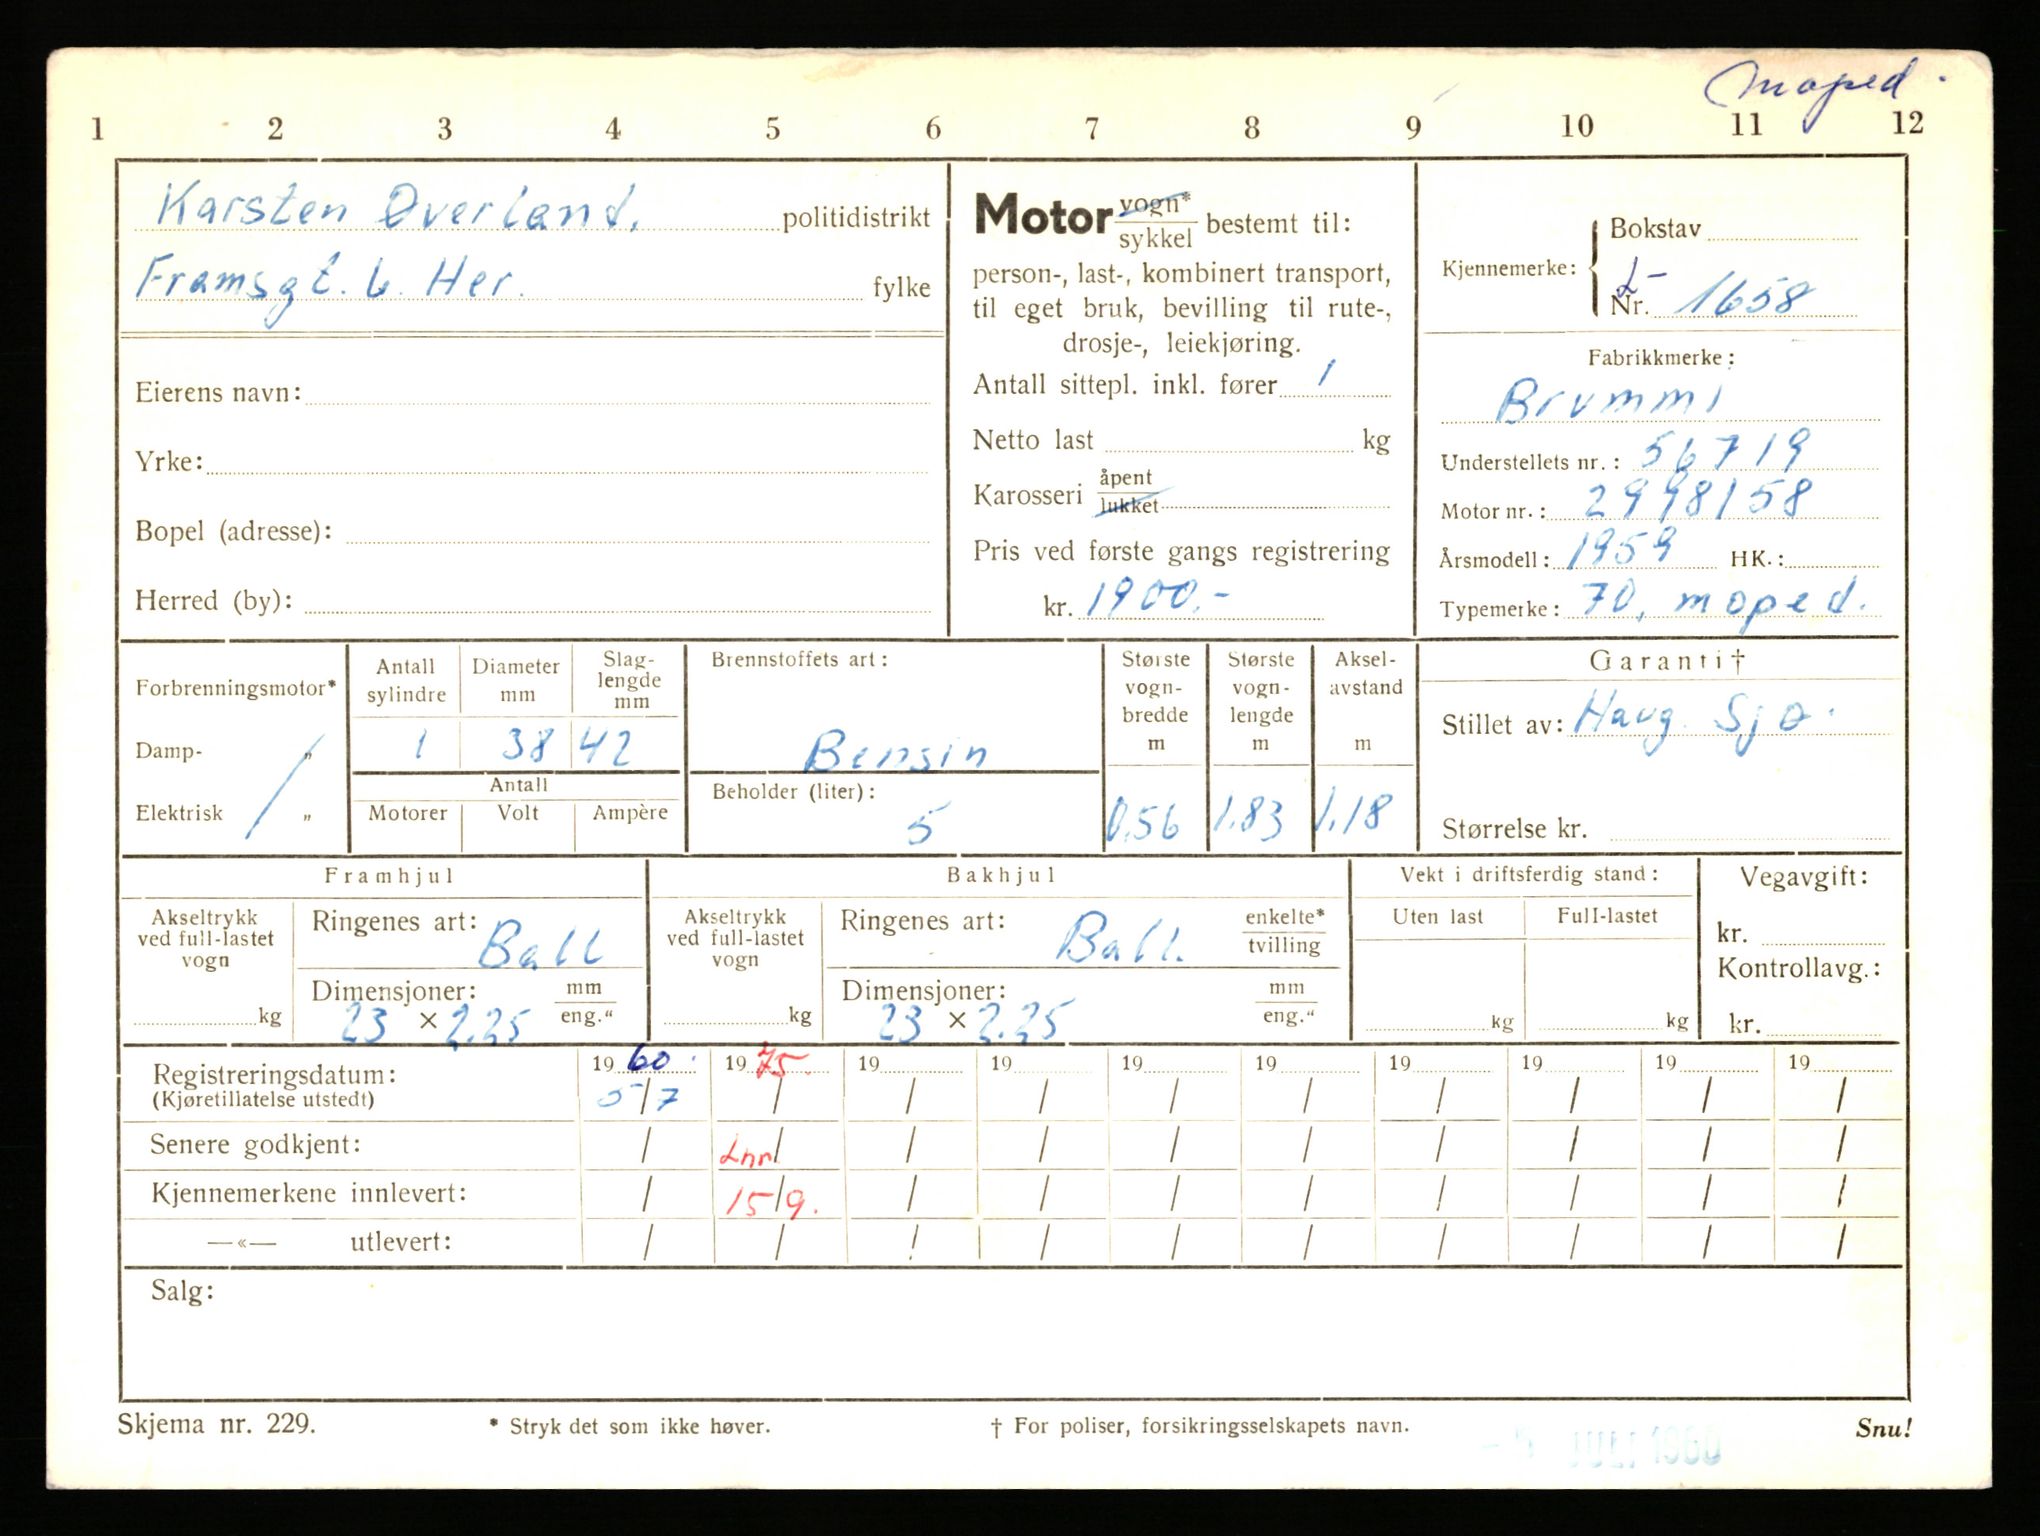 moped.
1 2 3 4 5 6 7 8 9 10 11 12
Karsten Øverland, politidistrikt
Framsgt. 6. Her. fylke
Eierens navn:
Yrke:
Bopel (adresse):
Herred (by):
Motor vogn* / sykkel bestemt til:
person-, last-, kombinert transport,
til eget bruk, bevilling til rute-,
drosje-, leiekjøring.
Antall sittepl. inkl. fører 1
Netto last kg
Karosseri åpent / lukket
Pris ved første gangs registrering
kr. 1900.-
Kjennemerke: Bokstav
L-
Nr. 1658
Fabrikkmerke:
Brummi
Understellets nr.: 56719
Motor nr.: 2998158
Årsmodell: 1959 HK.:
Typemerke: 70, moped.
Forbrenningsmotor*
Damp- „
Elektrisk „
Antall sylindre
Diameter mm
Slag-lengde mm
1 38 42
Antall
Motorer Volt Ampère
Brennstoffets art:
Bensin
Beholder (liter):
5
Største vogn-bredde m
0.56
Største vogn-lengde m
1.83
Aksel-avstand m
1.18
Garanti†
Stillet av: Haug. Sjø.
Størrelse kr.
Framhjul
Akseltrykk ved full-lastet vogn
kg
Ringenes art: Ball
Dimensjoner: mm / eng.“
23 × 2.25
Bakhjul
Akseltrykk ved full-lastet vogn
kg
Ringenes art: Ball. enkelte* / tvilling
Dimensjoner: mm / eng.“
23 × 2.25
Vekt i driftsferdig stand:
Uten last Full-lastet
kg kg
Vegavgift:
kr.
Kontrollavg.:
kr.
Registreringsdatum: 1960. 1975. 19 19 19 19 19 19 19 19
(Kjøretillatelse utstedt) 5/7 / / / / / / / / /
Senere godkjent: / Lnr/ / / / / / / / /
Kjennemerkene innlevert: / 15/9. / / / / / / / /
—«— utlevert: / / / / / / / / / /
Salg:
Skjema nr. 229. * Stryk det som ikke høver. † For poliser, forsikringsselskapets navn. Snu!
JULI 1960